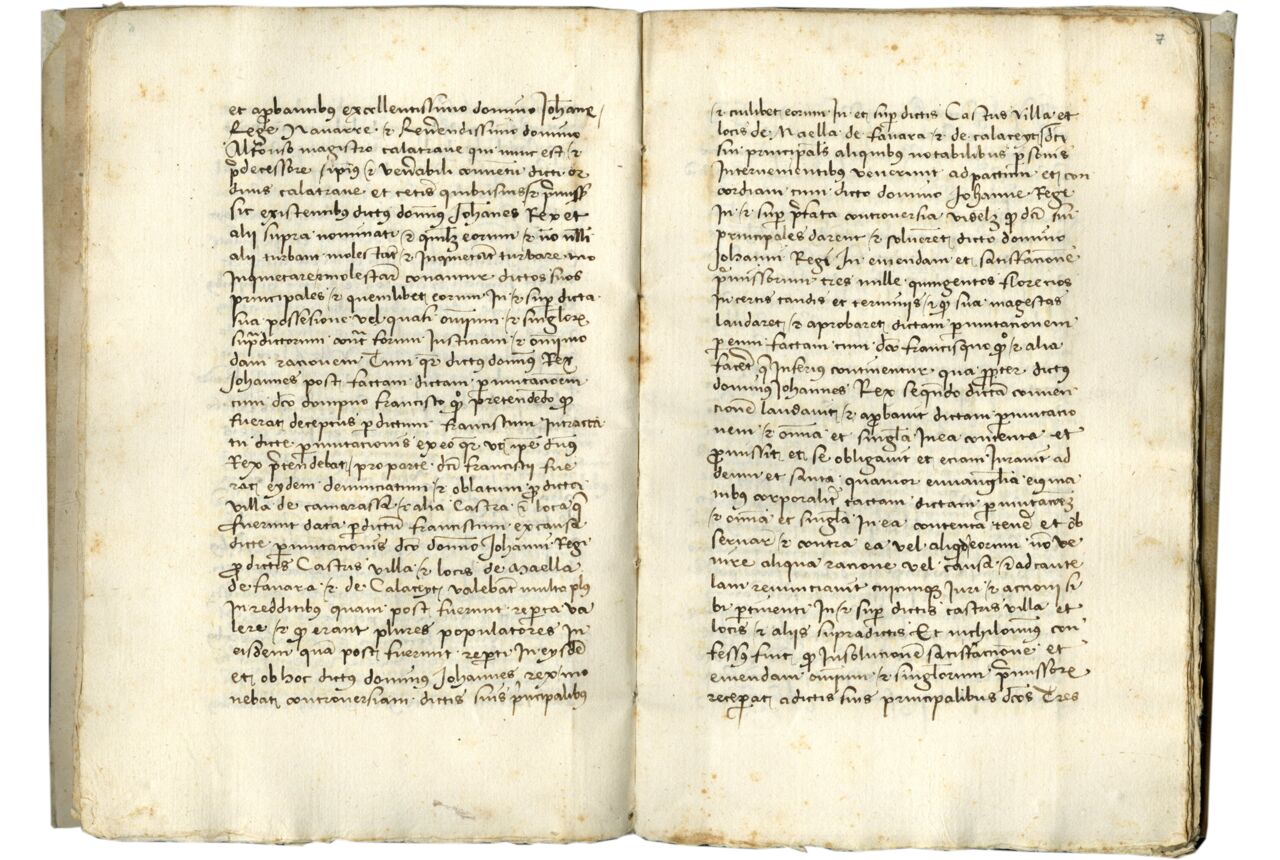 et aprbantibus excellentissimo domino Johane
Rege Navarre · & Reverendissimo domino
Alfonso magistro calatrave qui nunc est &
predecessore & venerabili conventu dicti or
dinis calatrave et ceteris quibusvis
sic existentibus dictus dominus Johanes Rex et
alii supra nominati & quilibet eorum & non nulli
alii turbant molestant & Inquietant turbare
Inquietare molestare conantur dictos suos
principales & quemlibet eorum In & super dicta
sua possesione vel quasi omnium & singulorum
supradictorum contra forum Justiciam & omnimo
dam racionem Cum quia dictus dominus Rex
Johannes post factam dictam permutacionem
cum dicto dompno Francisco pretendendo
fuerat deceptus per dictum Franciscum In tracta
tu dicte permutacionis ex eo quia ut ipse dominus
Rex pretendebat pro parte dicti Francisci fue
rat eydem denunciatum & oblatum
villa de camarassa & alia Castra & loca que
fuerunt data per dictum Franciscum ex causa
dicte permutacionis dicto domino Johanni Regi
pro dictis Castris villa & locis de Maella
de favara & de Calaceyt valebant multo plus
In redditibus quam post fuerunt reperta va
lere & quod erant plures populatores In
eisdem qua post fuerunt reperti In eysdem
et ob hoc dictus dominus Johannes rex mo
vebat controversiam dictis suis principalibus
7
& cuilibet eorum In et super dictis Castris villa et
locis de Maella de favara & de calaceyt dicti
sui principales aliquibus notabilibus personis
Intervenientibus venerunt ad pactum et con
cordiam cum dicto domino Johanne Regi
In & super prefata controversia videlicet quod dicti sui
principales darent & solverent dicto domino
Johanni Regi In emendam et satisfacione
premissorum tres mille quingentos florenos
In certis tandis et terminis & quod sua magestas
laudaret & aprobaret dictam permutacionem
per eum factam cum dicto Francisquo & alia
faceret que Inferius continentur qua propter dictus
dominus Johannes Rex sequendo dictam conven
cionem laudavit & aprobavit dictam permutacio
nem & omnia et singula In ea contenta et
promissit et se obligavit et eciam Juravit ad
deum et santa quatuor evvangelia eius ma
nibus corporaliter tactam dictam permutacionem
& omnia et singula In ea contenta tenere et ob
servare & contra ea vel aliquod eorum non ve
nire aliqua racione vel causa & ad caute
lam renunciavit cuicunque Juri & accioni si
bi pertinenti In & super dictis castris villa et
locis & aliis supradictis Et nichilominus con
fessus fuit quod In solucionem satisfacione et
emendam omnium & singulorum premissorum
receperat a dictis suis principalibus dictos Tres